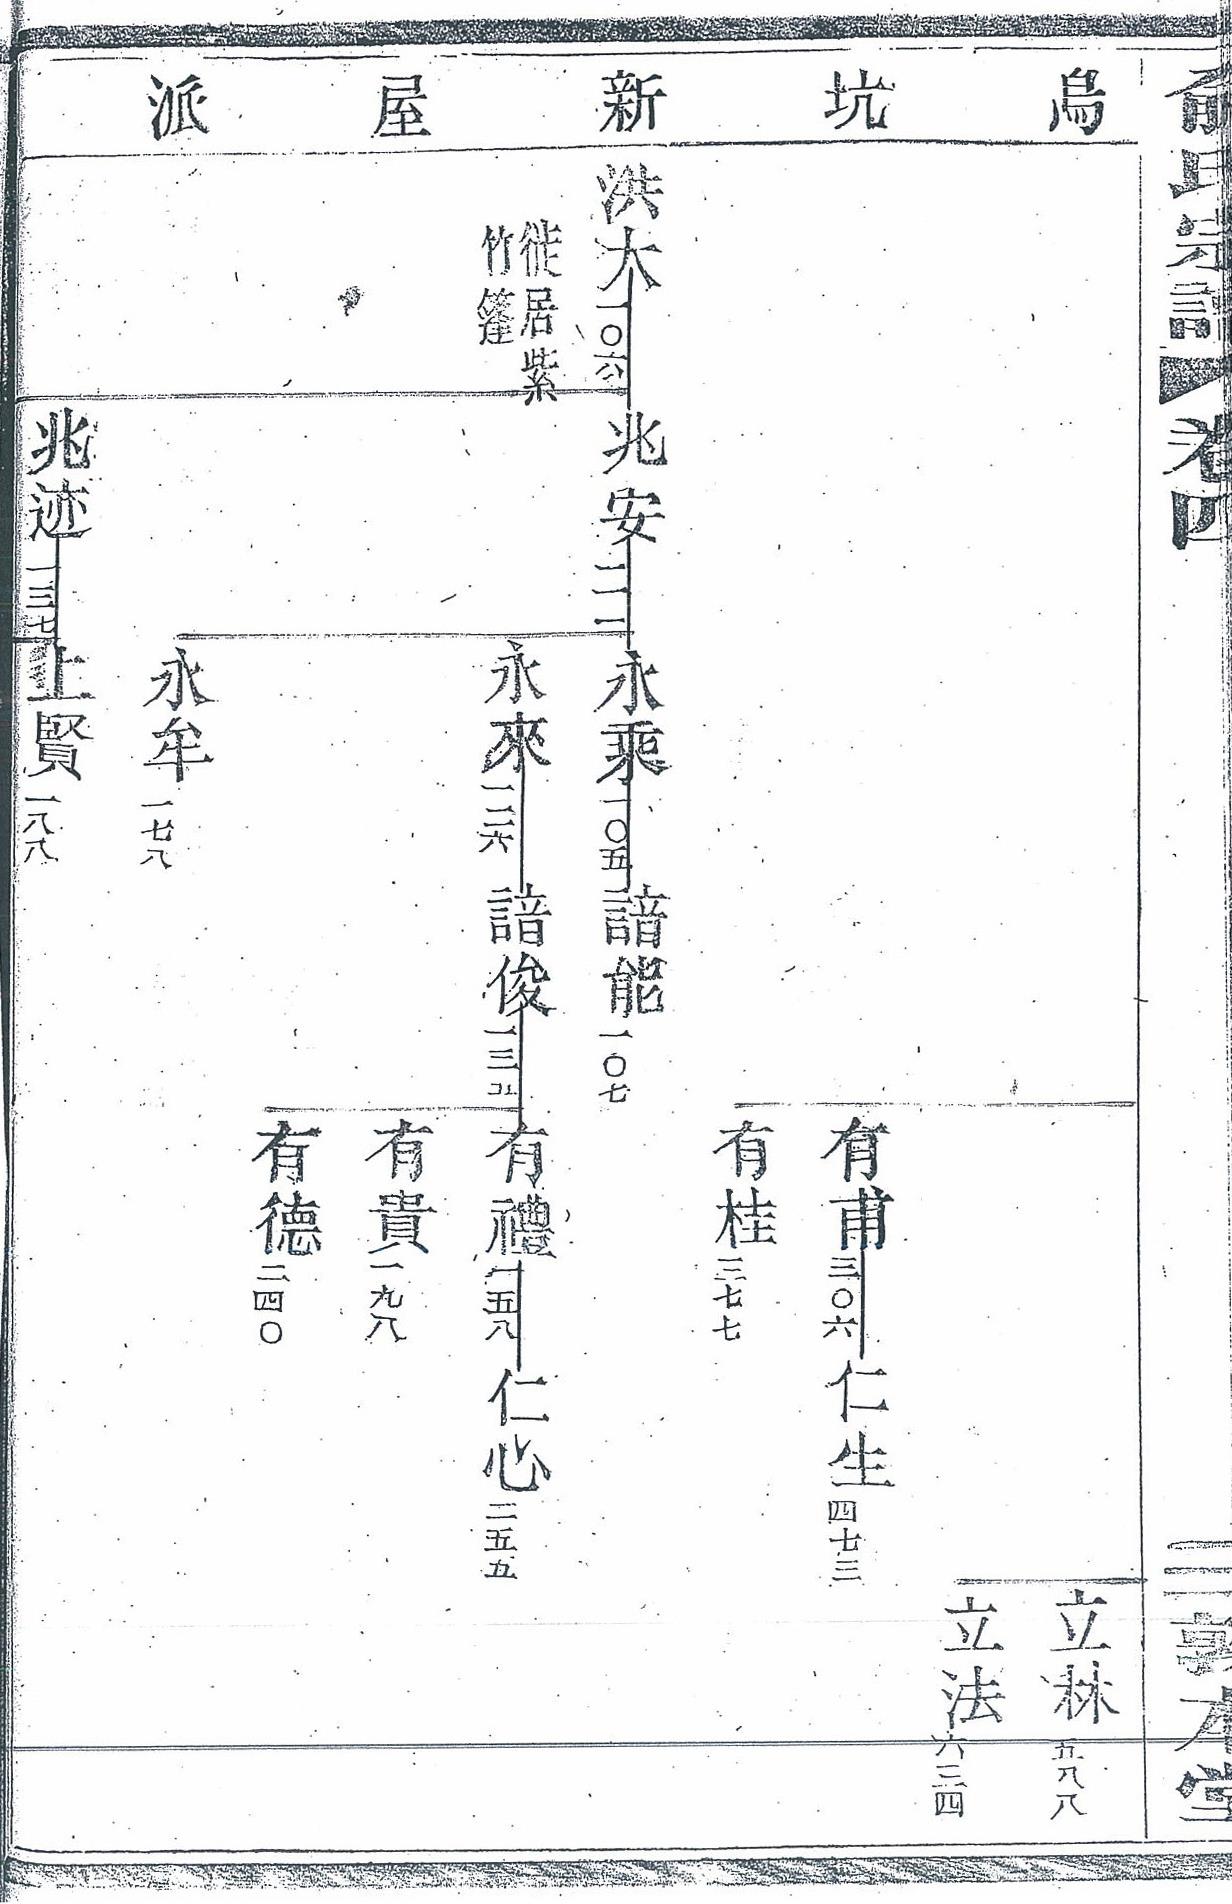 俞氏宗譜
卷四
三
敦本堂
烏坑新屋派
立林
五八八
立法
六三四
有甫
三〇六
仁生
四七三
有桂
三七七
洪大
一〇六
徙居紫
竹篷
兆安
永乘
一〇五
諳能
一〇七
永來
諳俊
有禮
一五八
仁心
二五五
有貴
一九八
有德
二四〇
永牟
一七八
兆迹
一三七
上賢
一八八